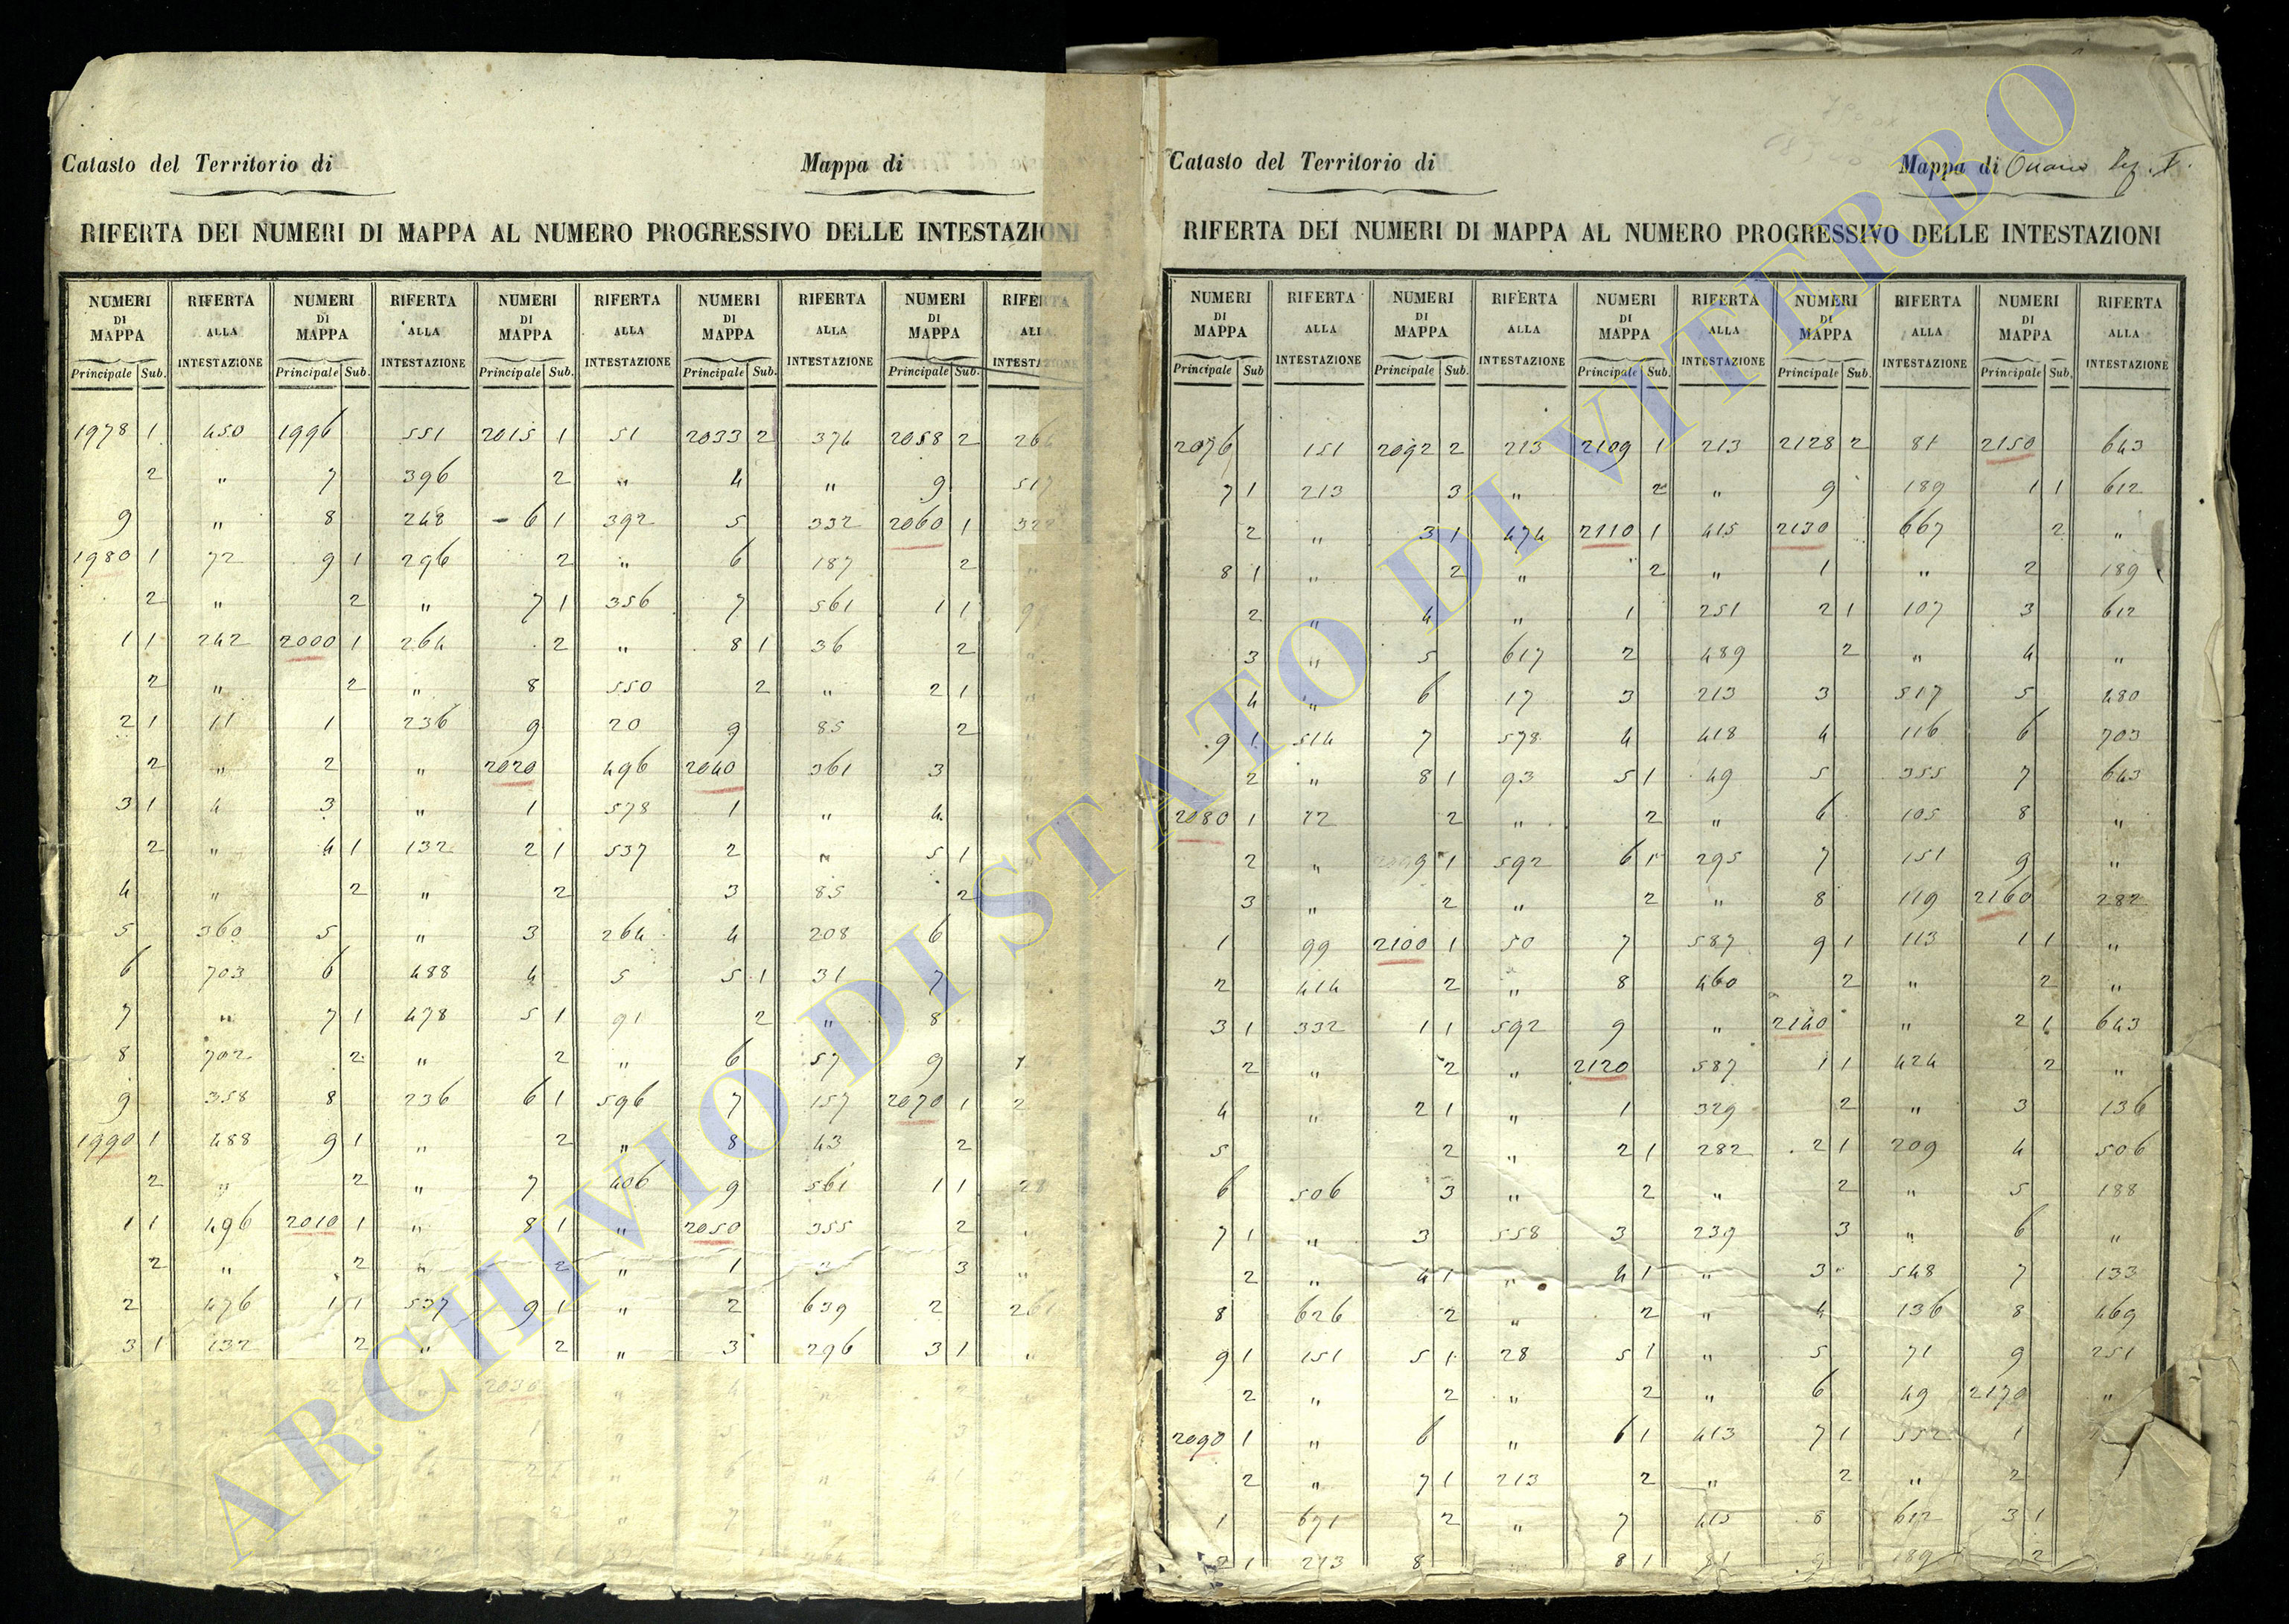 Catasto del Territorio di Mappa di
RIFERTA DEI NUMERI DI MAPPA AL NUMERO PROGRESSIVO DELLE INTESTAZIONI
NUMERI DI MAPPA RIFERTA ALLA INTESTAZIONE NUMERI DI MAPPA RIFERTA ALLA INTESTAZIONE NUMERI DI MAPPA RIFERTA ALLA INTESTAZIONE NUMERI DI MAPPA RIFERTA ALLA INTESTAZIONE NUMERI DI MAPPA RIFERTA ALLA
Principale Sub. Principale Sub. Principale Sub. Principale Sub. Principale Sub.
1978 1 450 1996 551 2015 1 51 2033 2 374 2058 2
2 " 7 396 2 " 4 " 9
9 " 8 248 6 1 392 5 332 2060 1
1980 1 72 9 1 296 2 " 6 187 2
2 " 2 " 7 1 356 7 561 1 1
1 1 242 2000 1 264 2 " 8 1 36 2
2 " 2 " 8 550 2 " 2 1
2 1 11 1 236 9 20 9 85 2
2 " 2 " 2020 496 2040 361 3
3 1 4 3 " 1 578 1 " 4
2 " 4 1 132 2 1 537 2 " 5 1
4 " 2 " 2 3 85 2
5 360 5 " 3 264 4 208 6
6 703 6 488 4 5 5 1 31 7
7 " 7 1 478 5 1 91 2 " 8
8 702 2 " 2 " 6 57 9
9 358 8 236 6 1 596 7 157 2070 1
1990 1 488 9 1 " 2 " 8 43 2
2 " 2 " 7 406 9 561 1 1
1 1 496 2010 1 " 8 1 " 2050 355 2
2 " 2 " 2 " 1 3
2 476 1 1 537 9 1 " 2 639 2
3 1 132 2 " 2 " 3 296 3 1
Catasto del Territorio di Mappa di
RIFERTA DEI NUMERI DI MAPPA AL NUMERO PROGRESSIVO DELLE INTESTAZIONI
NUMERI DI MAPPA RIFERTA ALLA INTESTAZIONE NUMERI DI MAPPA RIFERTA ALLA INTESTAZIONE NUMERI DI MAPPA RIFERTA ALLA INTESTAZIONE NUMERI DI MAPPA RIFERTA ALLA INTESTAZIONE NUMERI DI MAPPA RIFERTA ALLA INTESTAZIONE
Principale Sub Principale Sub. Principale Sub. Principale Sub. Principale Sub.
2076 151 2092 2 213 2109 1 213 2128 2 81 2150 643
7 1 213 3 " 2 " 9 189 1 1 612
2 " 3 1 474 2110 1 415 2130 667 2 "
8 1 " 2 " 2 " 1 " 2 189
2 " 4 " 1 251 2 1 107 3 612
3 " 5 617 2 489 2 " 4 "
4 " 6 17 3 213 3 517 5 480
9 1 514 7 578 4 418 4 116 6 703
2 " 8 1 93 5 1 49 5 355 7 643
2080 1 72 2 " 2 " 6 105 8 "
2 " 2099 1 592 6 1 295 7 151 9 "
3 " 2 " 2 " 8 119 2160 282
1 99 2100 1 50 7 587 9 1 113 1 1 "
2 414 2 " 8 460 2 " 2 "
3 1 332 1 1 592 9 " 2140 " 2 1 643
2 " 2 " 2120 587 1 1 424 2 "
4 " 2 1 " 1 329 2 " 3 136
5 2 " 2 1 282 2 1 209 4 506
6 506 3 " 2 " 2 " 5 188
7 1 " 3 558 3 239 3 " 6 "
2 " 4 1 " 4 1 " 3 548 7 133
8 626 2 " 2 " 4 136 8 469
9 1 151 5 1 28 5 1 " 5 71 9 251
2 " 2 " 2 " 6 49 2170 "
2090 1 " 6 " 6 1 413 7 1 552 1
2 " 7 1 213 2 " 2 " 2
1 671 2 " 7 415 8 612 3 1
2 1 213 8 8 1 81 9 189 2
ARCHIVIO DI STATO DI VITERBO